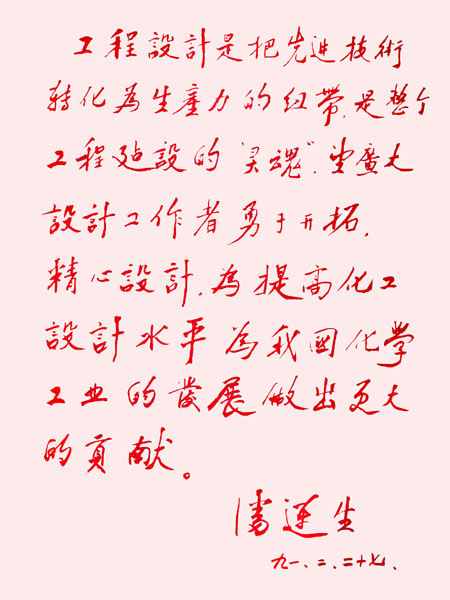 工程設計是把先進技術
轉化為生產力的纽帶,是整个
工程建設的“灵魂”.望廣大
設計工作者勇于开拓,
精心設計,為提高化工
設計水平為我國化學
工业的發展做出更大
的貢献。
潘連生
九一.二.二十七.